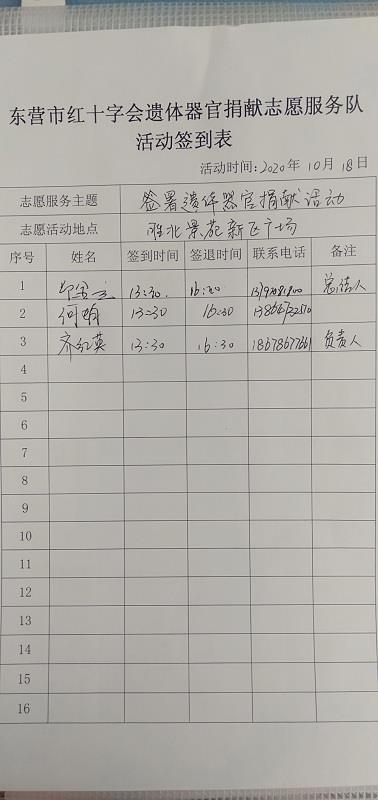 东营市红十字会遗体器官捐献志愿服务队
活动签到表
活动时间:2020年10月18日
志愿服务主题 签署遗体器官捐献活动
志愿活动地点 胜北景苑新区广场
序号 姓名 签到时间 签退时间 联系电话 备注
1 13:30. 16:30
2 13:30 16:30
3 齐红英 13:30 16:30 18678677661 负责人
4
5
6
7
8
9
10
11
12
13
14
15
16